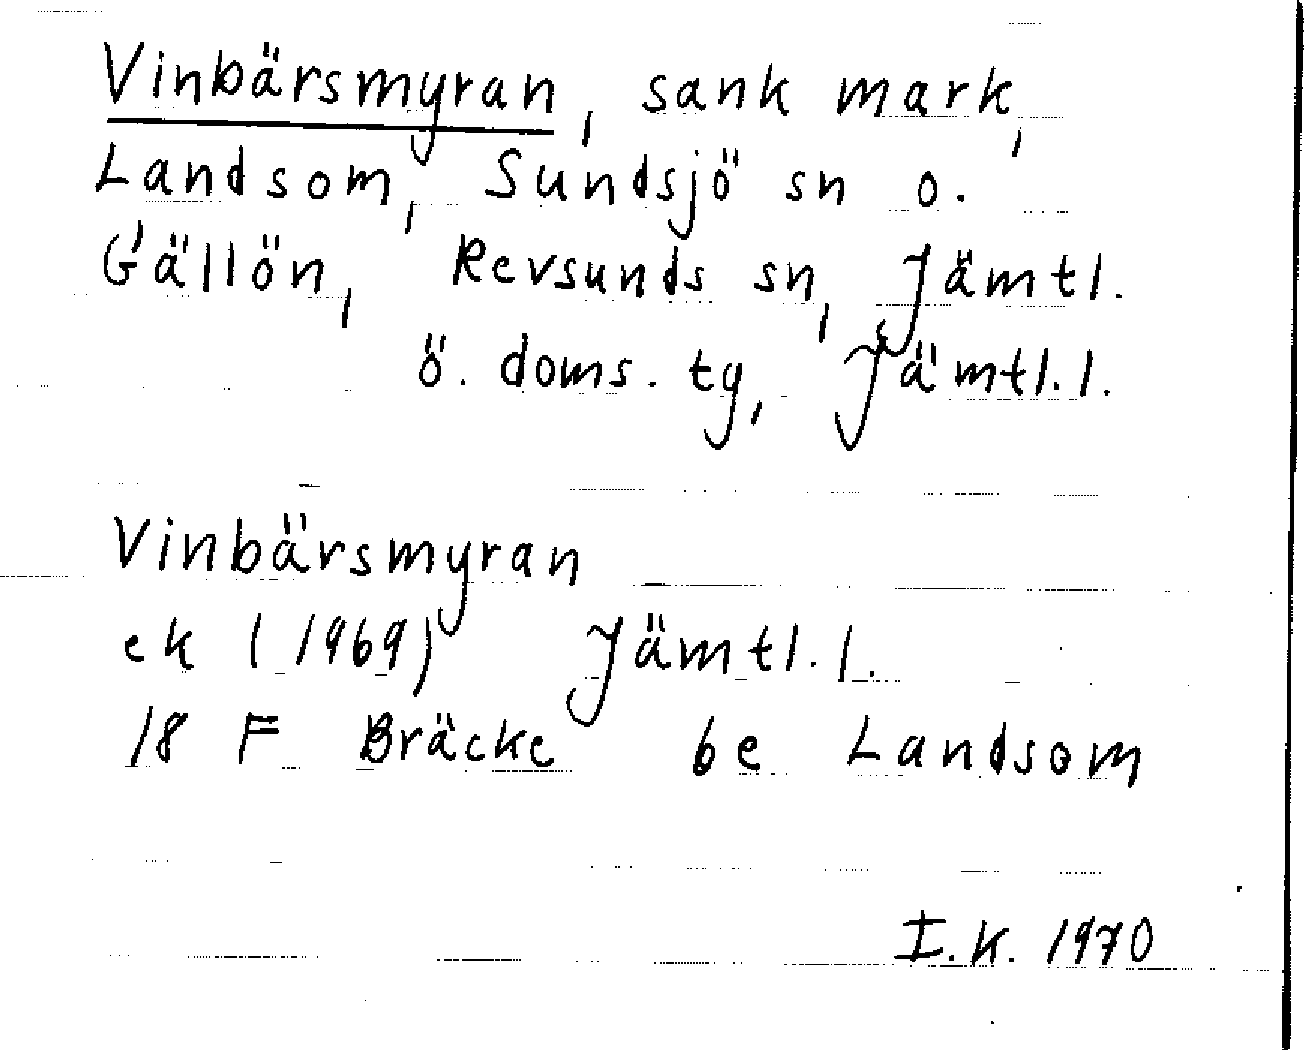 Vinbärsmyran, sank mark,
Landsom, Sundsjö sn o.
Gällön, Revsunds sn, Jämtl.
ö. doms. tg, Jämtl. l.
Vinbärsmyran
ek (1969) Jämtl. l.
18 F Bräcke 6e Landsom
I.K. 1970